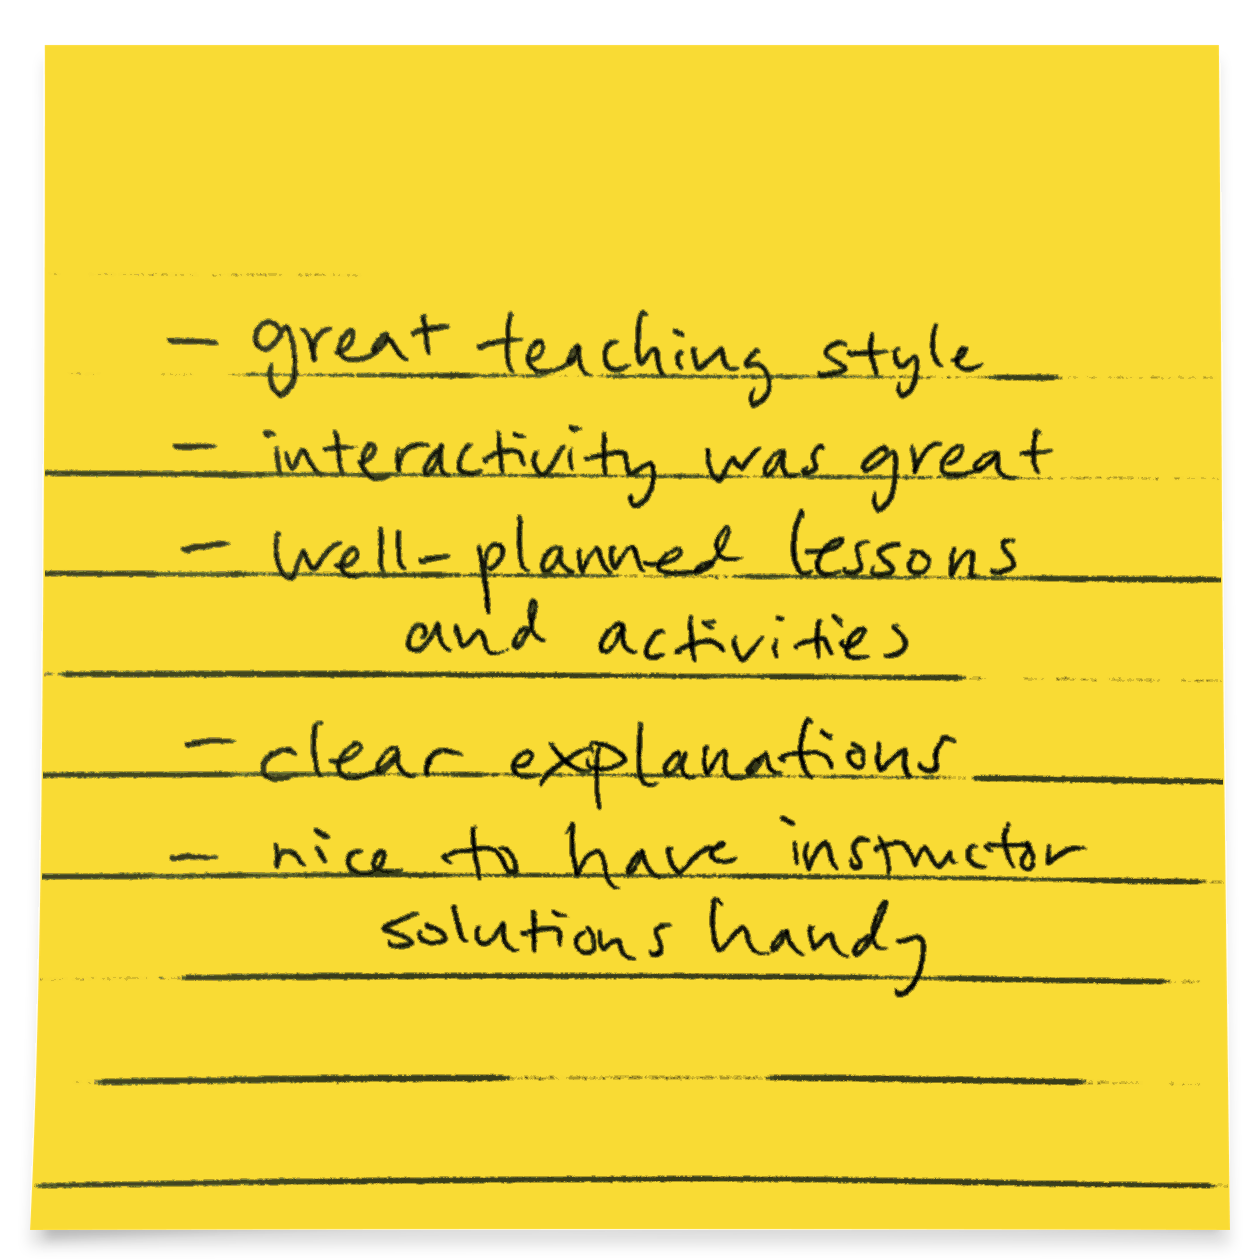 - great teaching style
- interactivity was great
- well-planned lessons
and activities
- clear explanations
- nice to have instructor
solutions handy